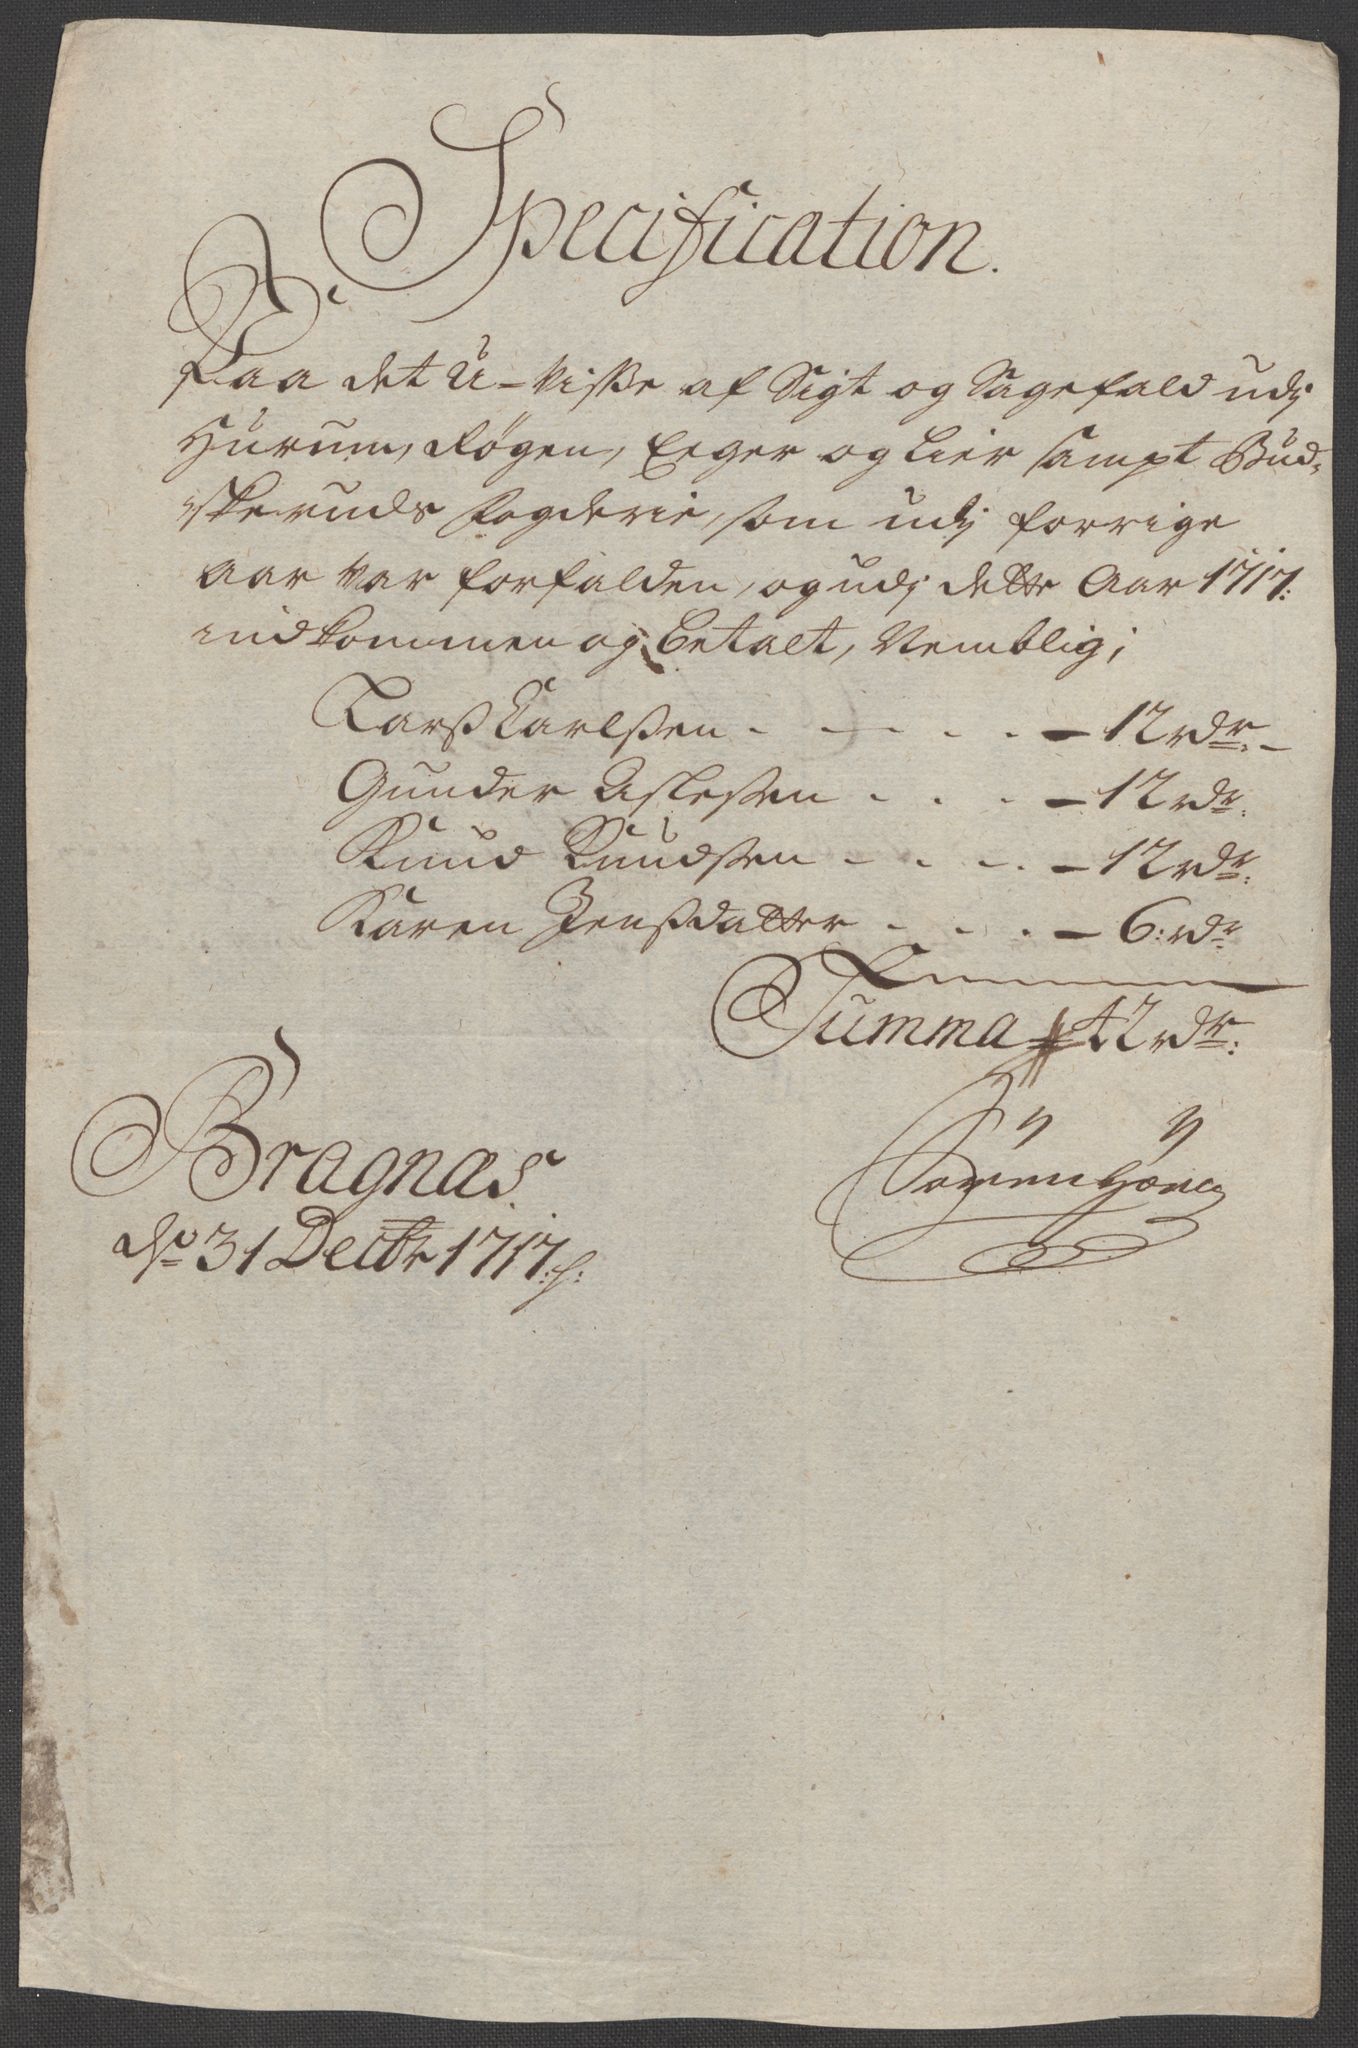 Specification.
Paa det U-visse af Sigt og Sagefald udj
Hurum, Røgen, Eeger og Lier sampt Bud-
skeruds fogderie, som udj forrige
Aar var forfalden, og udj dette Aar 1717:
indkommen og betalt, Nemblig;
Larss Carlssen . . . . . – 12 rdr: –
Gunder Aslessen . . . – 12 rdr:
Knud Knudssen . . . . – 12 rdr:
Karen Jenssdatter . . . – 6: rdr
Summa 42 rdr:
Bragnæs
dto 31 Decbr 1717:
Søfren